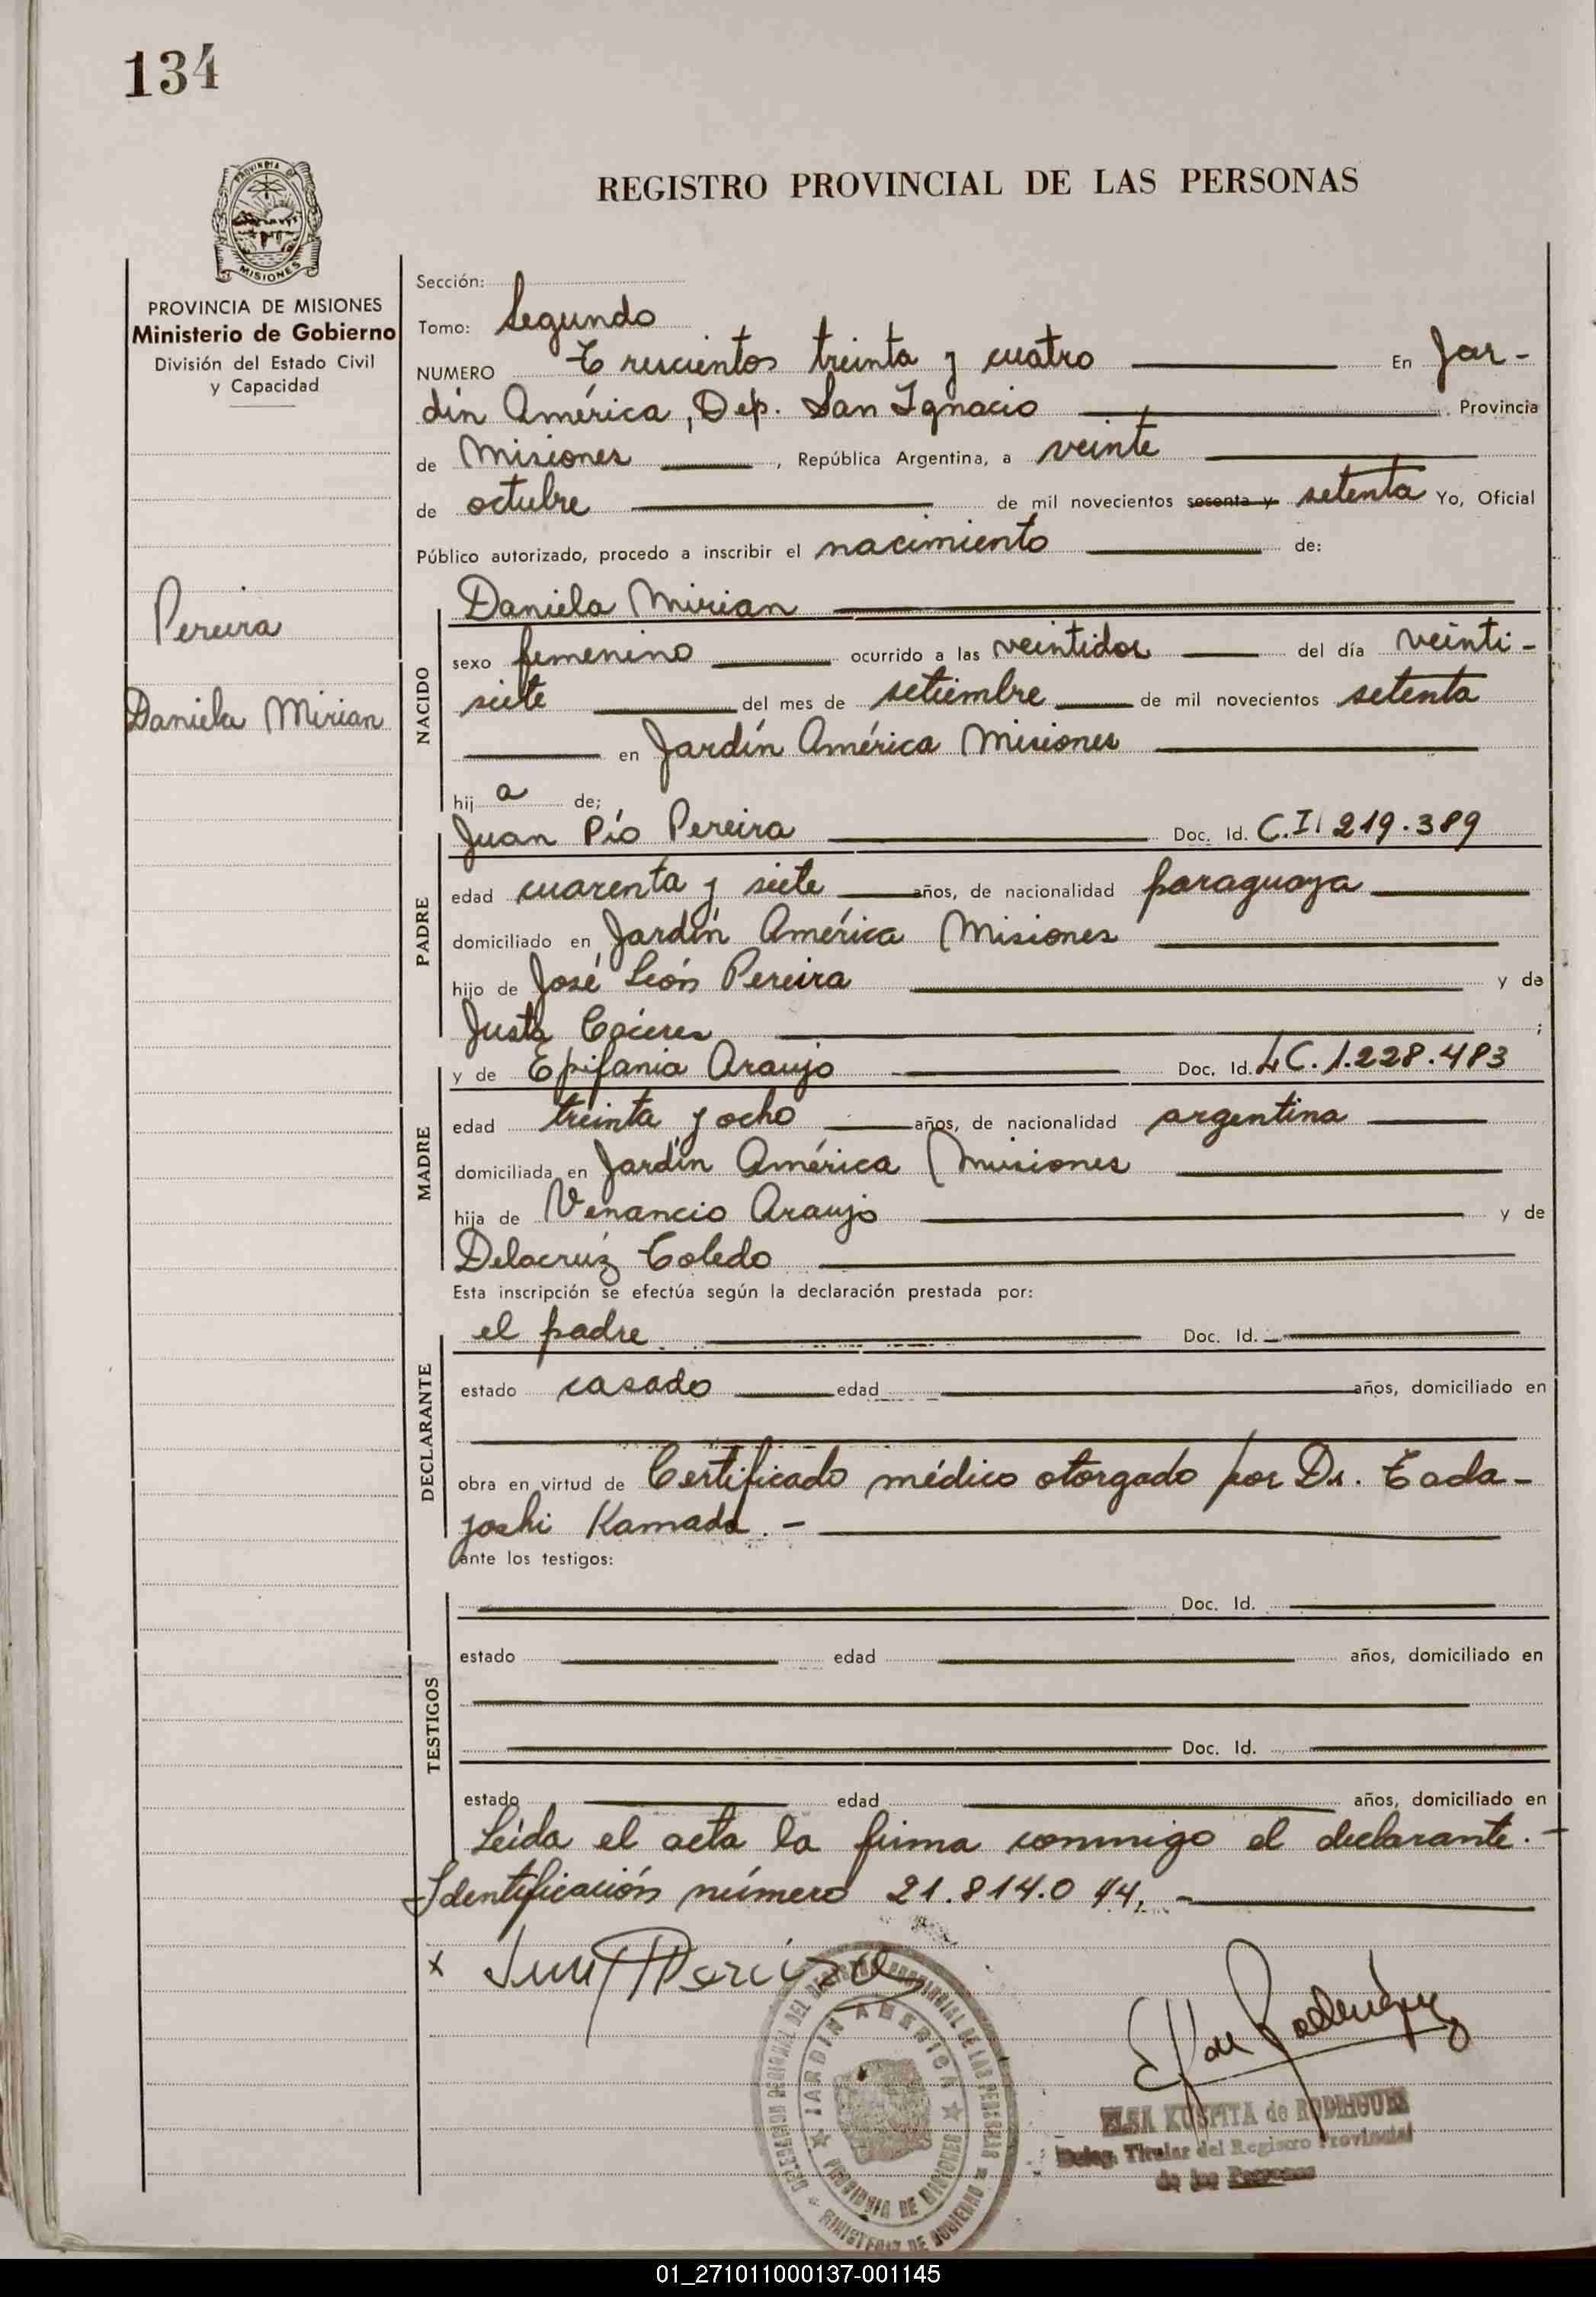 134
PROVINCIA DE
MISIONES
REGISTRO PROVINCIAL DE LAS PERSONAS
PROVINCIA DE MISIONES
Ministerio de Gobierno
División del Estado Civil
y Capacidad
Pereira
Daniela Mirian
Sección:
Tomo: Segundo
NUMERO Trescientos treinta y cuatro En Jar-
dín América, Dep. San Ignacio Provincia
de Misiones, República Argentina, a veinte
de octubre de mil novecientos sesenta y setenta Yo, Oficial
Público autorizado, procedo a inscribir el nacimiento de:
NACIDO
Daniela Mirian
sexo femenino ocurrido a las veintidos del día veinti-
siete del mes de setiembre de mil novecientos setenta
en Jardín América Misiones
hij a de;
PADRE
Juan Pío Pereira Doc. Id. C.I. 219.389
edad cuarenta y siete años, de nacionalidad paraguaya
domiciliado en Jardín América Misiones
hijo de José León Pereira y de
Justa Cáceres ;
MADRE
y de Epifania Araujo Doc. Id. L C. 1.228.483
edad treinta y ocho años, de nacionalidad argentina
domiciliada en Jardín América Misiones
hija de Venancio Araujo y de
Delacruz Toledo
Esta inscripción se efectúa según la declaración prestada por:
DECLARANTE
el padre Doc. Id.
estado casado edad años, domiciliado en
obra en virtud de Certificado médico otorgado por Dr. Tada-
yoshi Kamada.-
ante los testigos:
TESTIGOS
Doc. Id.
estado edad años, domiciliado en
Doc. Id.
estado edad años, domiciliado en
Leída el acta la firma conmigo el declarante.-
-Identificación número 21.814.044.-
x
DELEGACION REGIONAL DEL REGISTRO PROVINCIAL DE LAS PERSONAS
JARDIN AMERICA
PROVINCIA DE MISIONES
MINISTERIO DE GOBIERNO
ELSA KUSPITA de RODRIGUES
Deleg. Titular del Registro Provincial
de las Personas
01_271011000137-001145